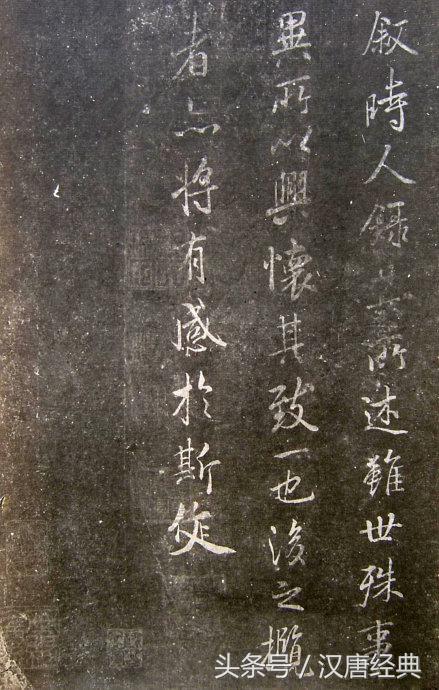 叙時人錄其所述雖世殊事
異所以興懷其致一也後之攬
者亦將有感於斯文
头条号/汉唐经典